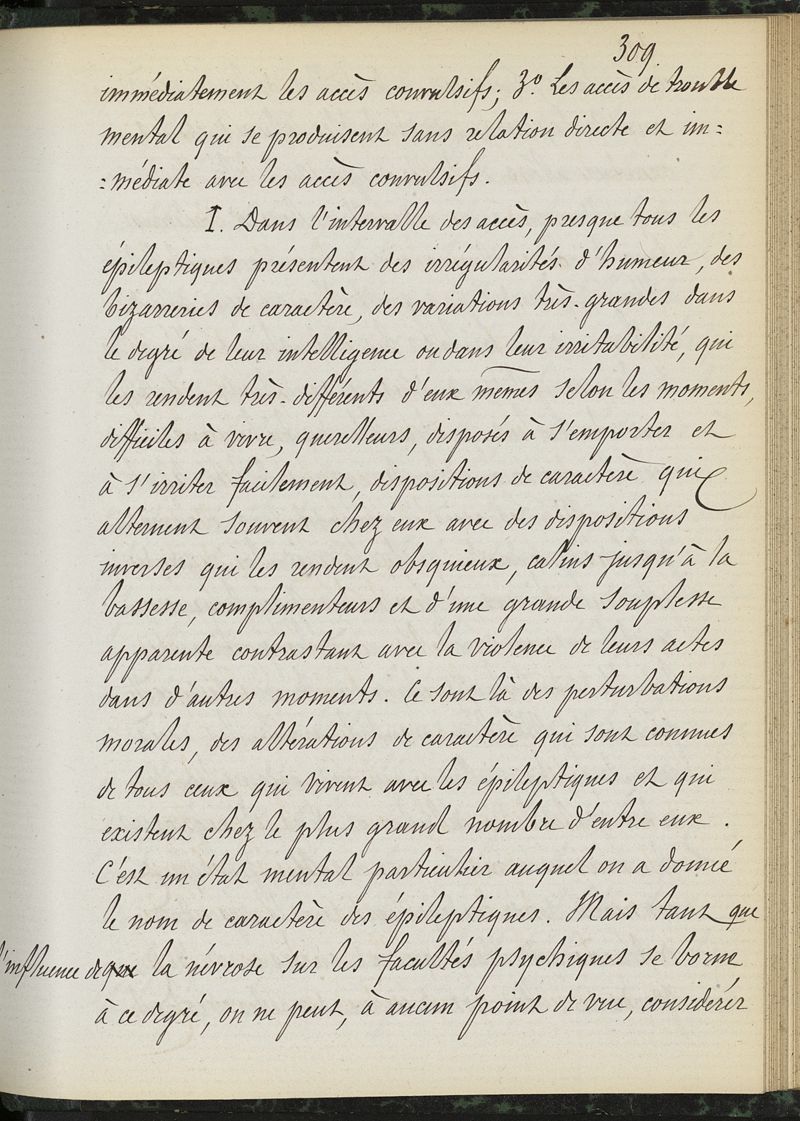 309
immédiatement les accès convulsifs; 3.º Les accès de trouble
mental qui se produisent sans relation directe et im=
=médiate avec les accès convulsifs.
I. Dans l'intervalle des accès, presque tous les
épileptiques présentent des irrégularités d'humeur, des
bizarreries de caractère, des variations très-grandes dans
le degré de leur intelligence ou dans leur irritabilité, qui
les rendent très-différents d'eux mêmes selon les moments,
difficiles à vivre, querelleurs, disposés à s'emporter et
à s'irriter facilement, dispositions de caractère qui
alternent souvent chez eux avec des dispositions
inverses qui les rendent obséquieux, calins jusqu'à la
bassesse, complimenteurs et d'une grande souplesse
apparente contrastant avec la violence de leurs actes
dans d'autres moments. Ce sont là des perturbations
morales, des altérations de caractère qui sont connues
de tous ceux qui vivent avec les épileptiques et qui
existent chez le plus grand nombre d'entre eux.
C'est un état mental particulier auquel on a donné
le nom de caractère des épileptiques. Mais tant que
l'influence de que la névrose sur les facultés psychiques se borne
à ce degré, on ne peut, à aucun point de vue, considérer